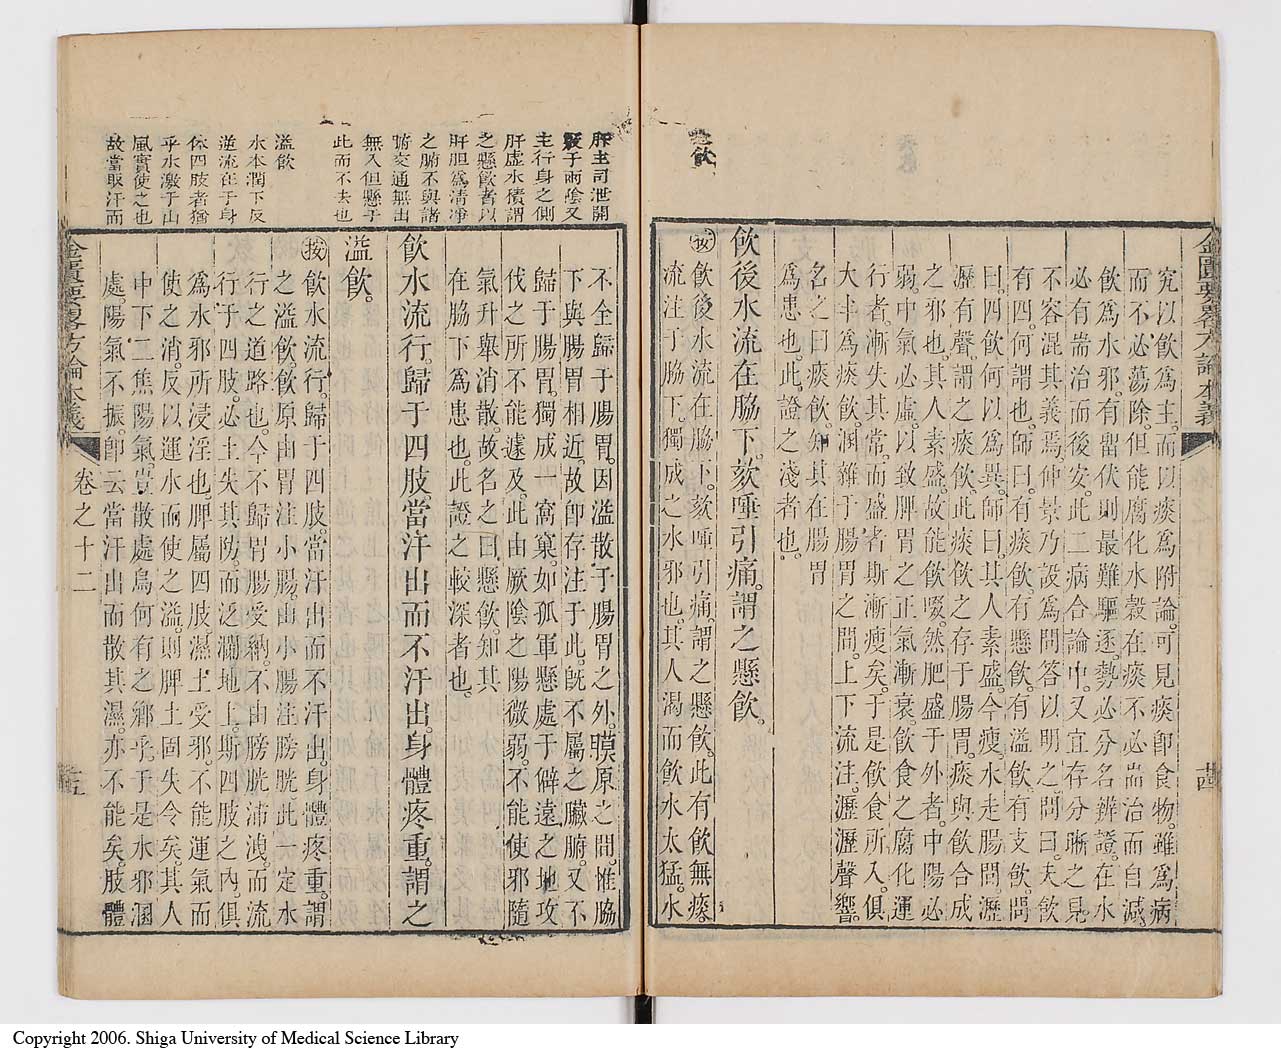 金匱要畧方論本義
究以飲爲主而以痰爲附論可見痰卽食物雖爲病
而不必蕩除但能腐化水穀在痰不必耑治而自減
飲爲水邪有畱伏則最難驅逐勢必分名辨證在水
必有耑治而後安此二病合論中又宜存分晰之見
不容混其義焉仲景乃設爲問答以明之問曰夫飲
有四何謂也師曰有痰飲有懸飲有溢飲有支飲問
曰四飲何以爲異師曰其人素盛今瘦水走腸間瀝
瀝有聲謂之痰飲此痰飲之存于腸胃痰與飲合成
之邪也其人素盛故能飲啜然肥盛于外者中陽必
弱中氣必虛以致脾胃之正氣漸衰飲食之腐化運
行者漸失其常而盛者斯漸瘦矣于是飲食所入俱
大半爲痰飲溷雜于腸胃之間上下流注瀝瀝聲響
名之曰痰飲知其在腸胃
爲患也此證之淺者也
飲後水流在脇下咳唾引痛謂之懸飲
按飲後水流在脇下咳唾引痛謂之懸飲此有飲無痰
流注于脇下獨成之水邪也其人渴而飲水太猛水
懸飲
不全歸于腸胃因溢散于腸胃之外膜原之間惟脇
下與腸胃相近故卽存注于此旣不屬之臟腑又不
歸于腸胃獨成一窩窠如孤軍懸處于僻遠之地攻
伐之所不能遽及此由厥陰之陽微弱不能使邪隨
氣升舉消散故名之曰懸飲知其
在脇下爲患也此證之較深者也
飲水流行歸于四肢當汗出而不汗出身體疼重謂之
溢飲
按飲水流行歸于四肢當汗出而不汗出身體疼重謂
之溢飲飲原由胃注小腸由小腸注膀胱此一定水
行之道路也今不歸胃腸受納不由膀胱沛洩而流
行于四肢必土失其防而泛瀾地上斯四肢之內俱
爲水邪所浸淫也脾屬四肢濕土受邪不能運氣而
使之消反以運水而使之溢則脾土固失令矣其人
中下二焦陽氣豈散處烏何有之鄉乎于是水邪溷
處陽氣不振卽云當汗出而散其濕亦不能矣肢體
肝主司泄開
竅于兩陰又
主行身之側
肝虛水積謂
之懸飲者以
肝胆爲清凈
之腑不與諸
腑交通無出
無入但懸于
此而不去也
溢飲
水本潤下反
逆流在于身
体四肢者猶
乎水激于山
風實使之也
故當取汗而
金匱要畧方論本義
卷之十二
Copyright 2006. Shiga University of Medical Science Library